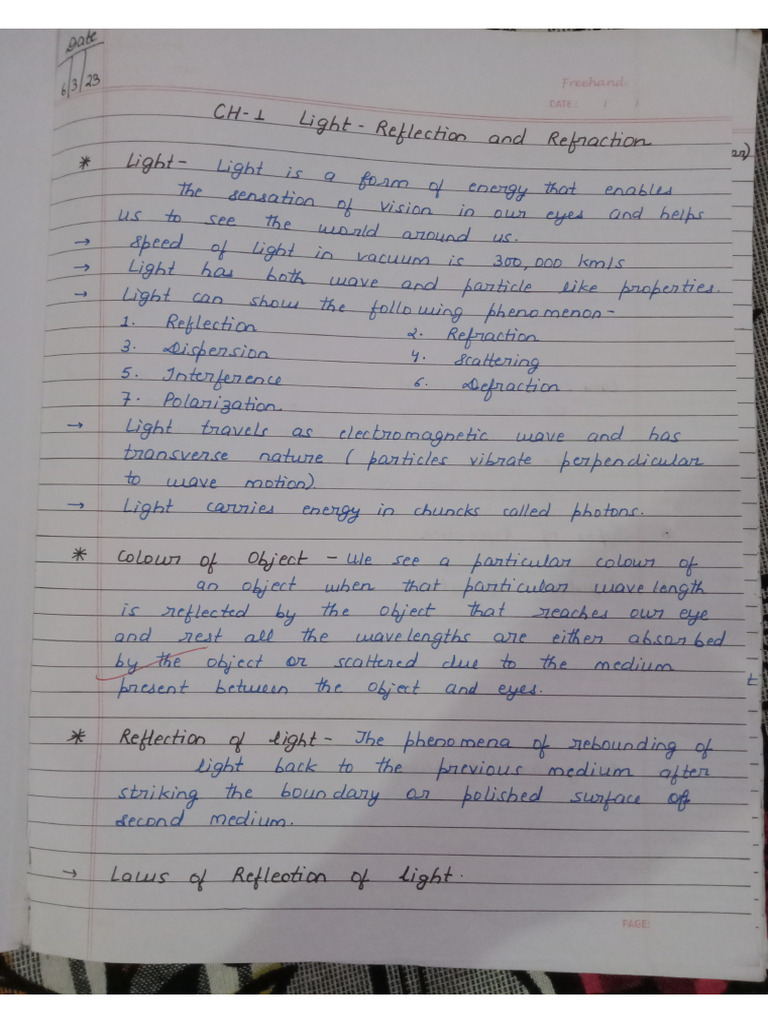 Date
6/3/23
Freehand
DATE: / /
CH-1 Light - Reflection and Refraction
* Light - Light is a form of energy that enables
the sensation of vision in our eyes and helps
us to see the world around us.
→ Speed of light in vacuum is 300,000 km/s
→ Light has both wave and particle like properties.
→ Light can show the following phenomenon-
1. Reflection 2. Refraction
3. Dispersion 4. Scattering
5. Interference 6. Defraction
7. Polarization
→ Light travels as electromagnetic wave and has
transverse nature (particles vibrate perpendicular
to wave motion).
→ Light carries energy in chuncks called photons.
* Colour of Object - We see a particular colour of
an object when that particular wavelength
is reflected by the object that reaches our eye
and rest all the wavelengths are either absorbed
by the object or scattered due to the medium
present between the object and eyes.
* Reflection of light - The phenomena of rebounding of
light back to the previous medium after
striking the boundary or polished surface of
second medium.
→ Laws of Reflection of light.
PAGE: